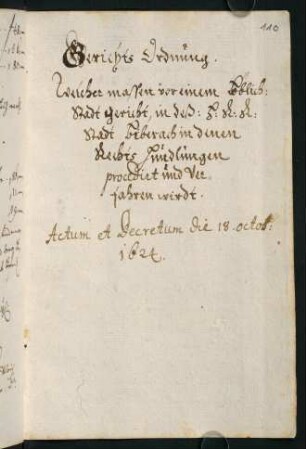 110
Gerichts Ordnung.
Welcher massen vor einem Löblich:
Stadt Gericht, in deß: H: R: R:
Stadt Biberach in denen
Rechts Händlungen
procedirt und Ver
fahren wirdt.
Actum et Decretum die 18. octob:
1624.